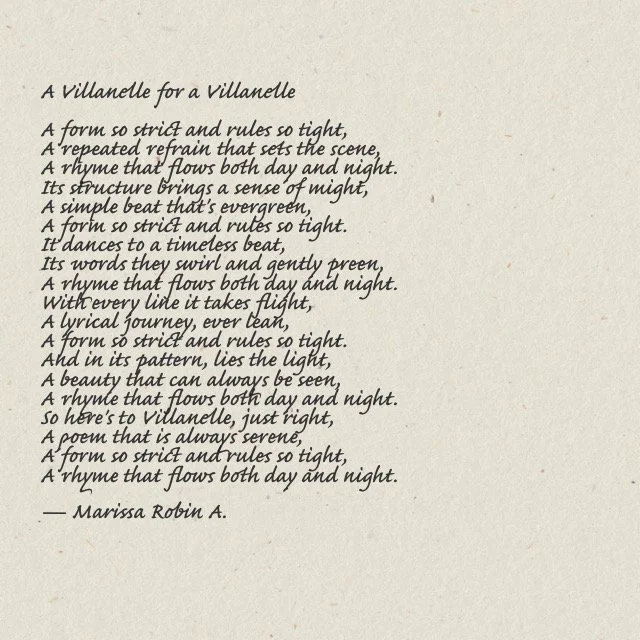 A Villanelle for a Villanelle
A form so strict and rules so tight,
A repeated refrain that sets the scene,
A rhyme that flows both day and night.
Its structure brings a sense of might,
A simple beat that's evergreen,
A form so strict and rules so tight.
It dances to a timeless beat,
Its words they swirl and gently preen,
A rhyme that flows both day and night.
With every line it takes flight,
A lyrical journey, ever lean,
A form so strict and rules so tight.
And in its pattern, lies the light,
A beauty that can always be seen,
A rhyme that flows both day and night.
So here's to Villanelle, just right,
A poem that is always serene,
A form so strict and rules so tight,
A rhyme that flows both day and night.
— Marissa Robin A.